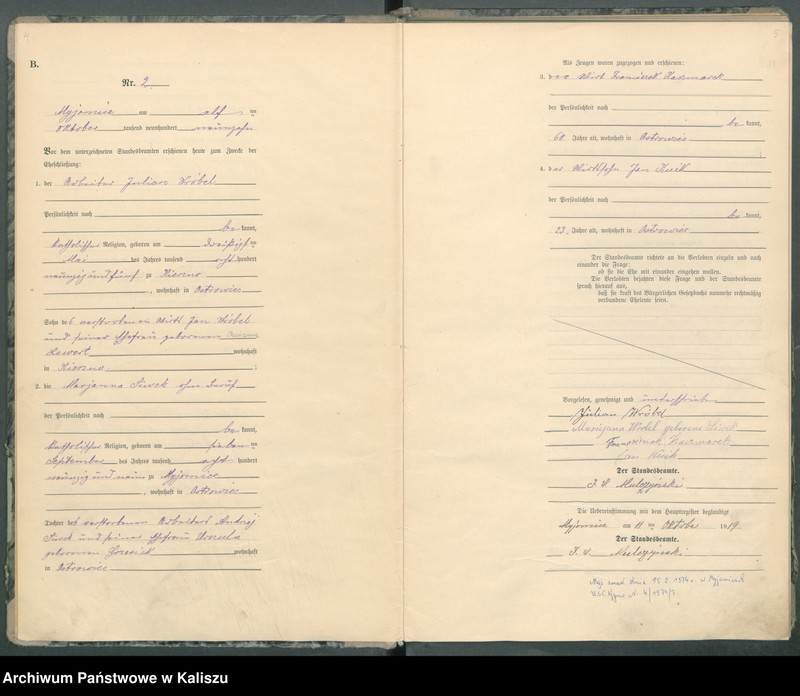 B.
Nr. 2
Myjomice am elf ten
Oktober tausend neunhundert neunzehn
Vor dem unterzeichneten Standesbeamten erschienen heute zum Zwecke der
Eheschließung:
1. der Arbeiter Julian Wróbel
Persönlichkeit nach
be kannt,
katholischer Religion, geboren am dreißigsten
Mai des Jahres tausend acht hundert
neunzig und fünf zu Kierzno
, wohnhaft in Ostrowiec
Sohn des verstorbenen Wirts Jan Wróbel
und seiner Ehefrau geborenen
wohnhaft
in Kierzno ;
2. die Marjanna Siwek ohne Beruf
der Persönlichkeit nach
be kannt,
katholischer Religion, geboren am sieben ten
September des Jahres tausend acht hundert
neunzig und neun zu Myjomice
, wohnhaft in Ostrowiec
Tochter des verstorbenen Arbeiters Andrzej
Siwek und seiner Ehefrau Urszula
geborenen wohnhaft
in Ostrowiec
5
Als Zeugen waren zugezogen und erschienen:
3. der Wirt Franciszek Kaczmarek
der Persönlichkeit nach
be kannt,
60 Jahre alt, wohnhaft in Ostrowiec
;
4. der Wirtssohn Jan
der Persönlichkeit nach
be kannt,
23 Jahre alt, wohnhaft in Ostrowiec
Der Standesbeamte richtete an die Verlobten einzeln und nach
einander die Frage:
ob sie die Ehe mit einander eingehen wollen.
Die Verlobten bejahten diese Frage und der Standesbeamte
sprach hierauf aus,
daß sie kraft des Bürgerlichen Gesetzbuchs nunmehr rechtmäßig
verbundene Eheleute seien.
Vorgelesen, genehmigt und unterschrieben
Julian Wróbel
Marijana Wróbel geborene Siwek
Kaczmarek
Jan
Der Standesbeamte.
J. V.
Die Uebereinstimmung mit dem Hauptregister beglaubigt
Myjomice am 11 ten Oktober 1919.
Der Standesbeamte.
J. V.
Mąż zmarł dnia 15.2.1974 r. w Myjomicach
USC Kępno Nr
Archiwum Państwowe w Kaliszu